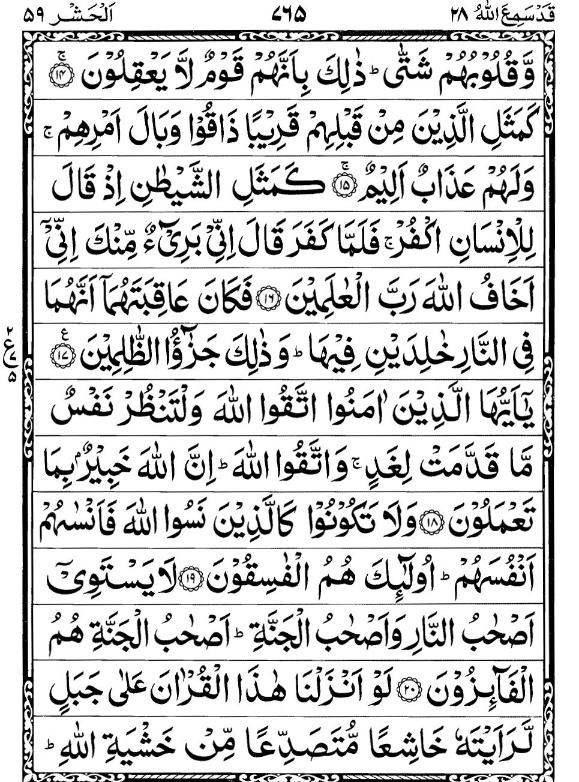 قَدۡسَمِعَ اللّٰهُ ۲۸ ۷۶۵ اَلۡحَشۡر ۵۹
وَّقُلُوۡبُهُمۡ شَتّٰى‌ؕ ذٰلِكَ بِاَنَّهُمۡ قَوۡمٌ لَّا يَعۡقِلُوۡنَ‌ۚ ﴿۱۴﴾
كَمَثَلِ الَّذِيۡنَ مِنۡ قَبۡلِهِمۡ قَرِيۡبًا ذَاقُوۡا وَبَالَ اَمۡرِهِمۡ‌ۚ
وَلَهُمۡ عَذَابٌ اَلِيۡمٌ‌ۚ ﴿۱۵﴾ كَمَثَلِ الشَّيۡطٰنِ اِذۡ قَالَ
لِلۡاِنۡسَانِ اكۡفُرۡ‌ۚ فَلَمَّا كَفَرَ قَالَ اِنِّىۡ بَرِىۡٓءٌ مِّنۡكَ اِنِّىۡۤ
اَخَافُ اللّٰهَ رَبَّ الۡعٰلَمِيۡنَ ﴿۱۶﴾ فَكَانَ عَاقِبَتَهُمَاۤ اَنَّهُمَا
فِى النَّارِ خٰلِدَيۡنِ فِيۡهَا‌ؕ وَذٰلِكَ جَزٰٓؤُا الظّٰلِمِيۡنَ ﴿۱۷﴾ ع
۲ ع ۷ ۵
يٰۤاَيُّهَا الَّذِيۡنَ اٰمَنُوا اتَّقُوا اللّٰهَ وَلۡتَنۡظُرۡ نَفۡسٌ
مَّا قَدَّمَتۡ لِغَدٍ‌ۚ وَاتَّقُوا اللّٰهَ‌ؕ اِنَّ اللّٰهَ خَبِيۡرٌۢ بِمَا
تَعۡمَلُوۡنَ ﴿۱۸﴾ وَلَا تَكُوۡنُوۡا كَالَّذِيۡنَ نَسُوا اللّٰهَ فَاَنۡسٰٮهُمۡ
اَنۡفُسَهُمۡ‌ؕ اُولٰٓٮِٕكَ هُمُ الۡفٰسِقُوۡنَ ﴿۱۹﴾ لَا يَسۡتَوِىۡۤ
اَصۡحٰبُ النَّارِ وَاَصۡحٰبُ الۡجَنَّةِ‌ؕ اَصۡحٰبُ الۡجَنَّةِ هُمُ
الۡفَآٮِٕزُوۡنَ ﴿۲۰﴾ لَوۡ اَنۡزَلۡنَا هٰذَا الۡقُرۡاٰنَ عَلٰى جَبَلٍ
لَّرَاَيۡتَهٗ خَاشِعًا مُّتَصَدِّعًا مِّنۡ خَشۡيَةِ اللّٰهِ‌ؕ